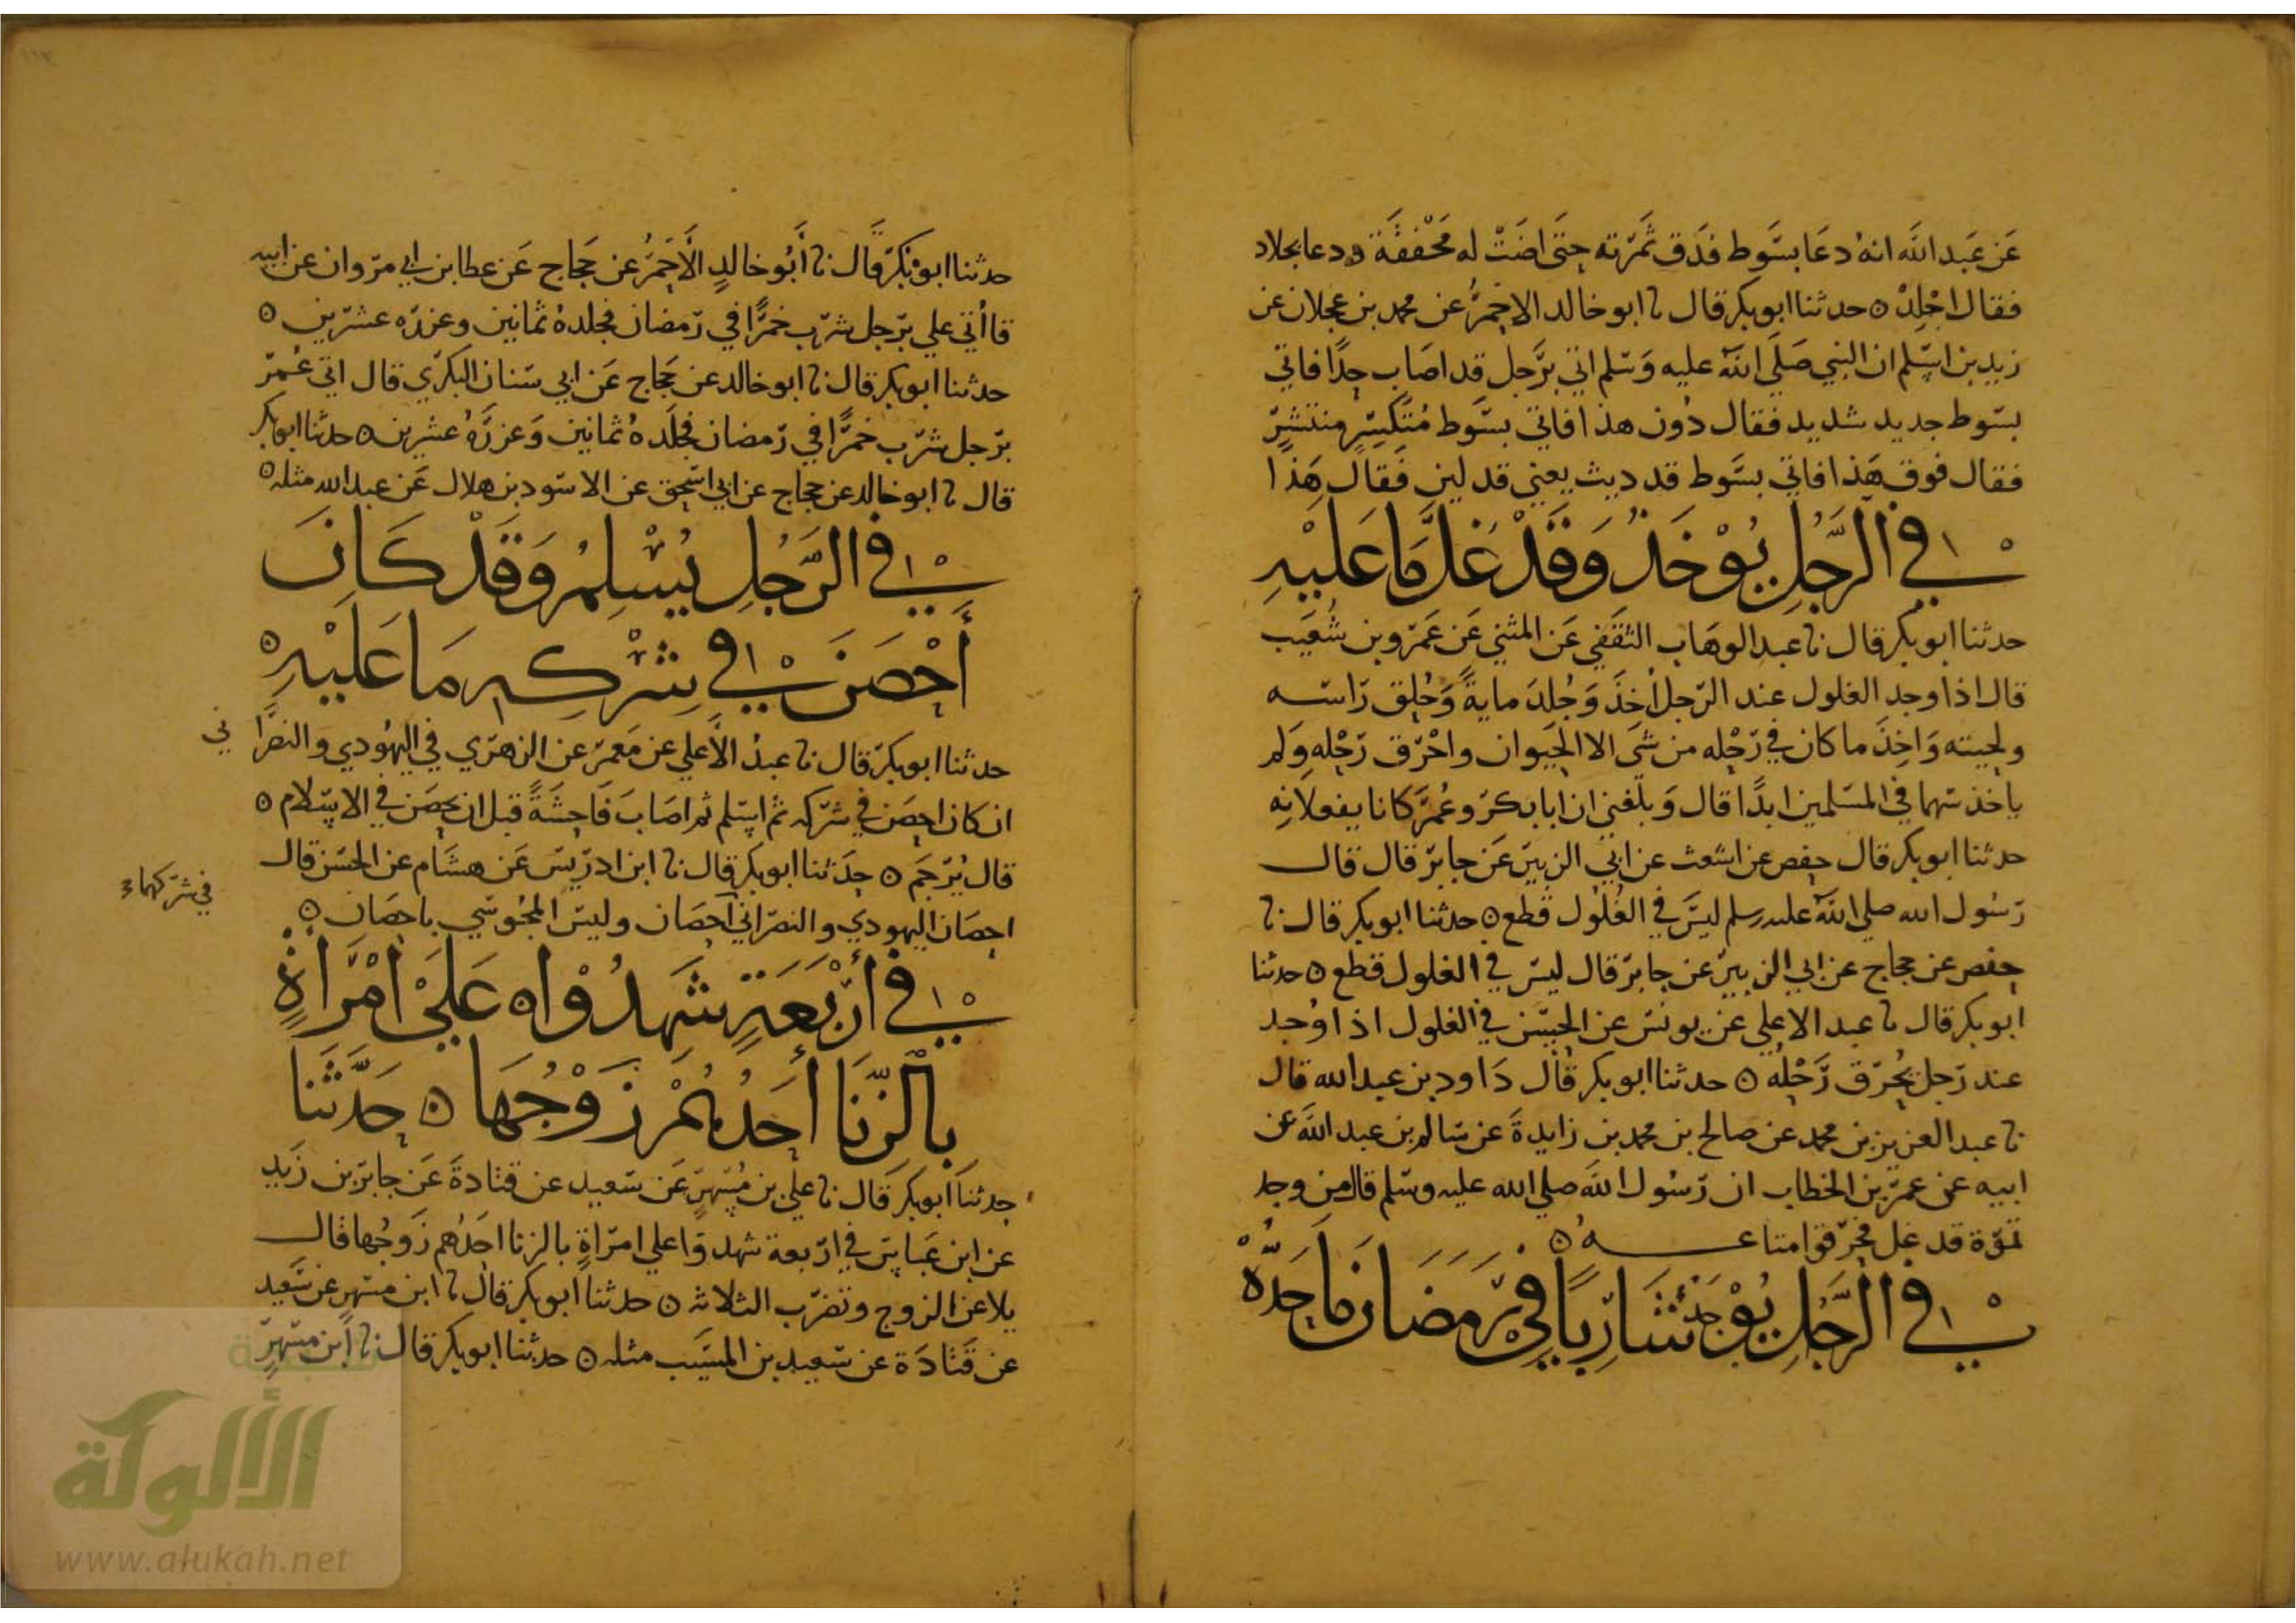 عَن عَبد الله انهُ دعَا بسَّوط فدَق ثمَرّته حتى اضَتْ له مَخْفَقَة ودعا بجلاد
فقال اجْلِدْ ٥ حدثنا ابو بكر قال نا ابو خالد الاحمرُ عن محمد بن عجلان عن
زيد بن اسلم ان النبي صَلَى الله عليه وَسَلم اتي برَّجل قد اصَاب حدًا فاتي
بسَوط جديد شديد فقال دُون هذا فاتي بسَّوط مُتكَسِّر منتشرّ
فقال فوق هَذا فاتي بسَّوط قد ديث يعني قد لين فقال هَذا
في الرَّجُلِ يُوْخَذُ وَقَدْ غَلَّ مَا عَلَيْهِ
حدثنا ابو بكر قال نا عبد الوهاب الثقفي عَن المثني عَن عَمرّو بن شُعَيب
قال اذا وجد الغلول عند الرّجل أخذَ وَجُلدَ مايةً وَحُلق رَاسه
ولحيته وَاخِذَ ما كان في رَحْله من شَى الا الحَيوان واحْرّق رَحْله وَلم
ياخذ سَهما في المسَلمين ابدًا قال وَبلغني ان ابا بكرّ وعُمرّ كانا يفعلانه
حدثنا ابو بكر قال حفص عن اشعث عن ابي الزبيرّ عَن جابرّ قال قال
رّسُول الله صلي الله عليه وسلم ليسَ في الغُلُول قطع ٥ حدثنا ابو بكر قال نا
حفص عن حجاج عن ابي الزبيرّ عن جابرّ قال ليسّ في الغلول قطع ٥ حدثنا
ابو بكر قال نا عبد الاعلي عن يونسّ عن الحسَن في الغلول اذا وُجد
عند رّجل يُحْرّق رَّحْلُه ٥ حدثنا ابو بكر قال دَاود بن عبد الله قال
نا عبد العزيز بن محمد عن صالح بن محمد بن زايدةَ عن سَالم بن عبد الله عن
ابيه عن عمرّ بن الخطاب ان رّسُول الله صلي الله عليه وسَلم قال من وجد
تموّة قد غل فحرّقوا متاعه ٥
في الرَّجُلِ يُوْجَدُ شَارِبًا فِي رَّمَضَانَ مَا حَدُّهُ
حدثنا ابو بَكرّ قال نا أَبُو خالدٍ الأَحمَرُ عن حَجاج عَن عطا بن ابي مرّوان عن ابيه
قا أُتي علي برّجل شرّب خمرًّا في رّمضان فجلدهُ ثمانين وعزرّه عشرّين ٥
حدثنا ابو بكر قال نا ابو خالد عن حَجاج عَن ابي سَنان البكرّي قال اتي عُمرّ
برّجل شرّب خمرًّا في رّمضان فجلَده ثمانين وَعزرَّهُ عشرين ٥ حدثنا ابو بكر
قال نا ابو خالد عن حجاج عن ابي اسَحق عن الاسَود بن هلال عَن عبد الله مثله ٥
في الرَّجُلِ يُسْلِمُ وَقَدْ كَانَ
أَحْصَنَ فِي شِرْكِهِ مَا عَلَيْهِ ٥
حدثنا ابو بكرّ قال نا عبدُ الأَعلي عن مَعمرّ عن الزهرّي في اليهُودي والنصرَّا ني
ان كان احصَن في شرّكه ثم اسَلم ثم اصَابَ فَاحِشَةً قبل ان يحصَن في الاسَلام ٥
قال يُرّجَم ٥ حدَثنا ابو بكر قال نا ابن ادرّيسّ عَن هشَام عن الحسَن قال
في شرّكهما
احصَان اليهودي والنصرّاني احصَان وليسَ المجُوسَي باحصَان ٥
في أَرْبَعَةٍ شَهِدُوْا ٥ عَلَىْ امْرَأَةٍ
بِالزِّنَا أَحَدُهُمْ زَوْجُهَا ٥ حَدَّثَنَا
حدثنا ابو بكر قال نا علي بن مُسّهرّ عَن سَعيد عن قتادةَ عَن جابرّ بن زَيدٍ
عن ابن عَباسّ في ارّبعة شهدوَا علي امرّاةٍ بالزنا احَدُهم زَوجُها قال
يلاعن الزوج وتضرّب الثلاثه ٥ حدثنا ابو بكر قال نا ابن مسّهرٍ عن سَعيد
عن قَتادَة عن سَعيد بن المسَيَب مثله ٥ حدثنا ابو بكر قال نا ابن مسّهرّ
شبكة
الألوكة
www.alukah.net